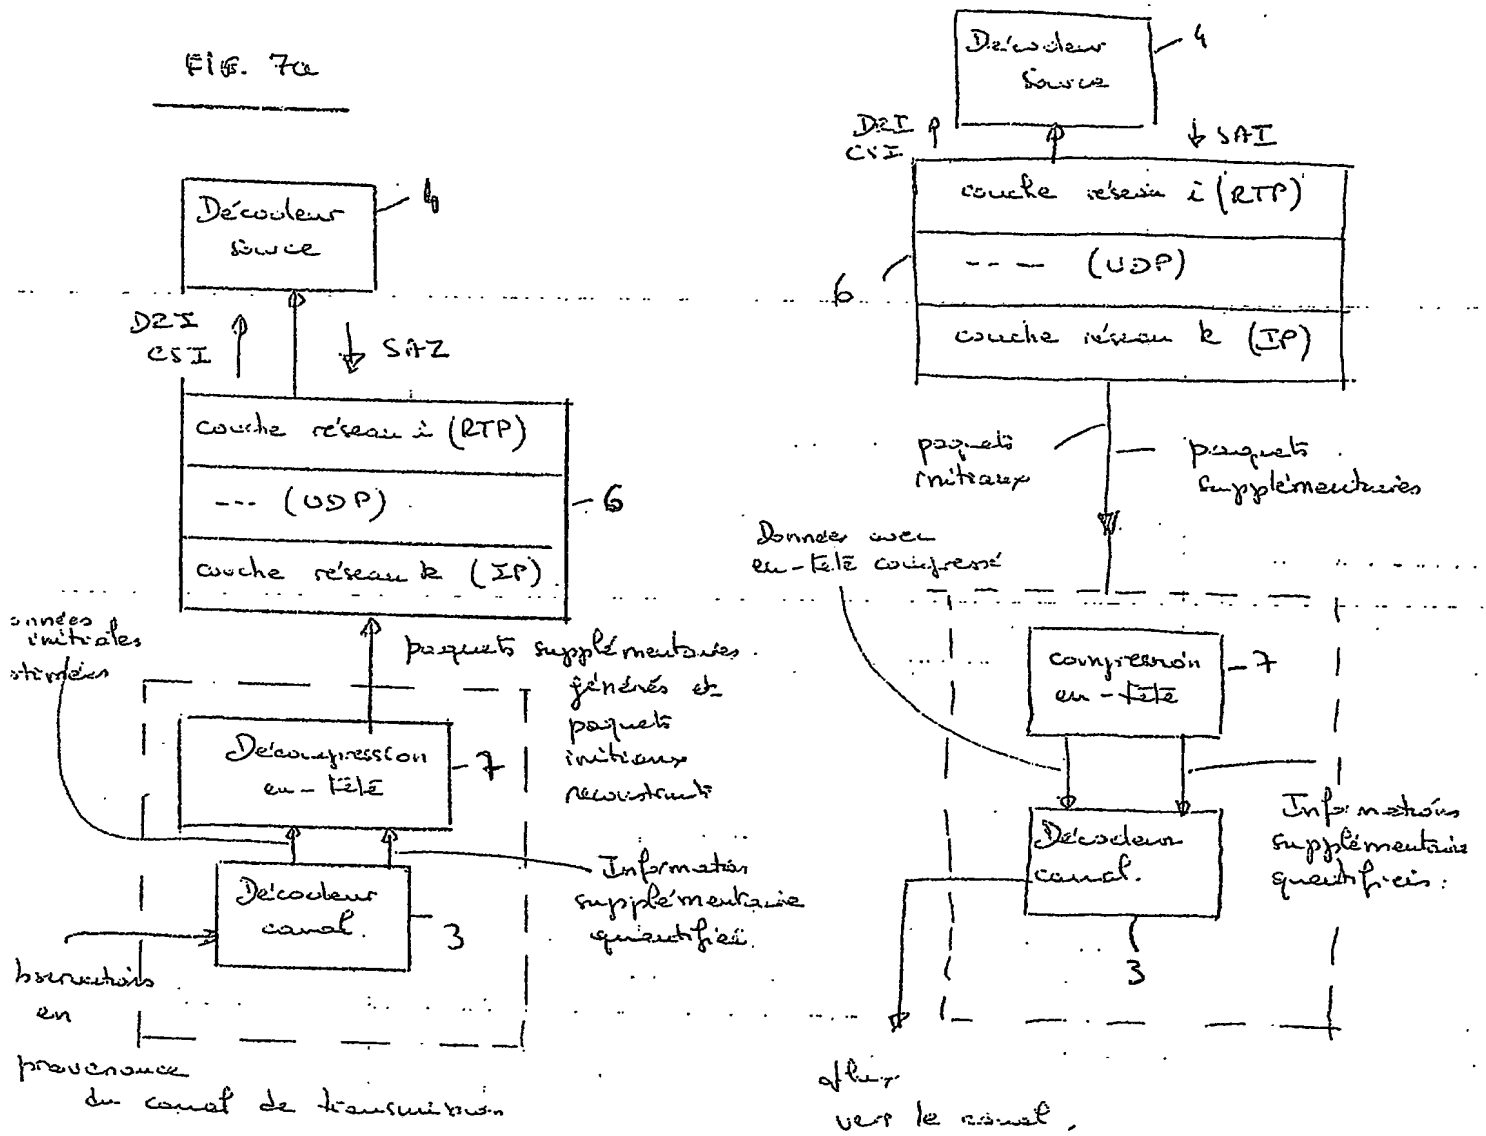 FIG. 7a
Décodeur
source
4
DRI
CSI
SAI
couche réseau i (RTP)
--- (UDP)
couche réseau k (IP)
6
onnées
initiales
stimées
paquets supplémentaires
générés et
paquets
initiaux
reconstruits
Décompression
en-tête
7
Décodeur
canal.
3
Information
supplémentaire
quantifiée.
bservations
en
provenance
du canal de transmission
Décodeur
Source
4
DRI
CSI
SAI
couche réseau i (RTP)
--- (UDP)
couche réseau k (IP)
6
paquets
initiaux
paquets
supplémentaires
Données avec
en-tête compressé
compression
en-tête
7
Décodeur
canal.
3
Informations
supplémentaire
quantifiées.
flux
vers le canal.